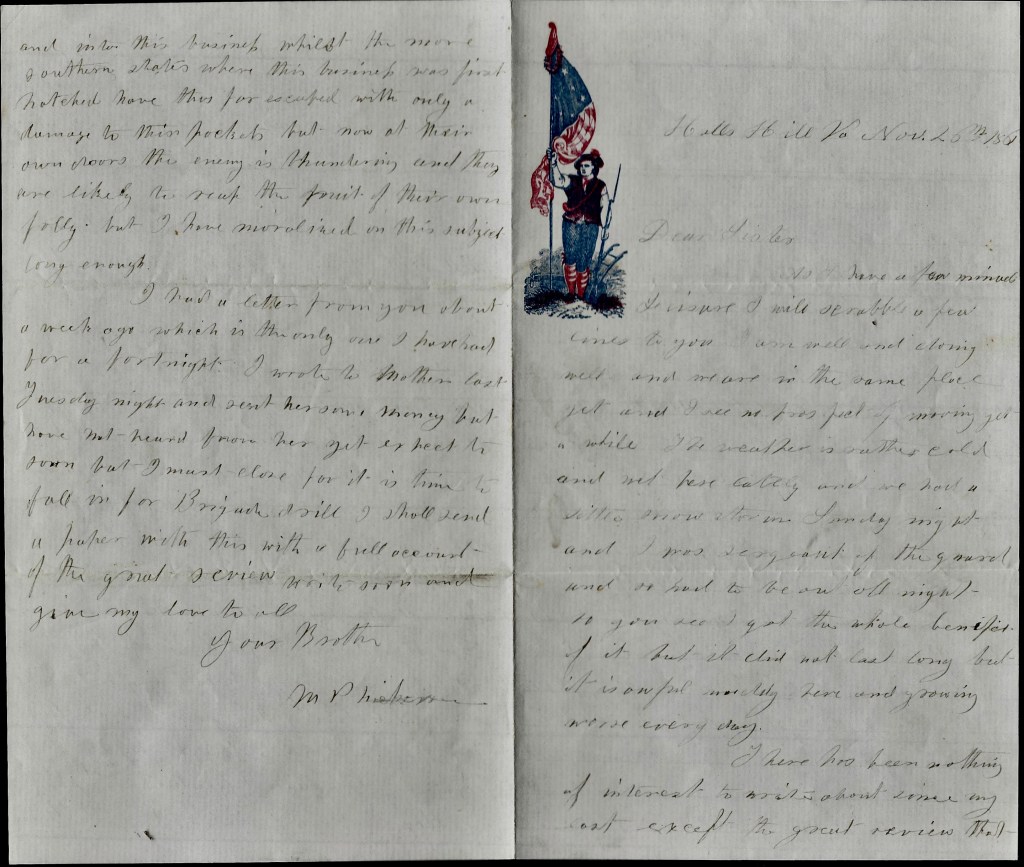 Halls Hill Va Nov. 26th 1861
Dear Sister
As I have a few minuts
Leisure I will scrabble a few
Lines to you I am well and doing
well and we are in the same place
yet and I see no prospect of moving yet
a while The weather is rather cold
and and we had a
little snow storm Sunday night
and I was sergeant of the guard
and so had to be on all night
so you see I got the whole benifit
of it but it did not last long but
it is awful muddy here and growing
worse every day.
There has been nothing
of interest to write about since my
last except the great review that
and into this business whilst the more
southern states where this business was first
hatched have thus far escaped with only a
damage to their pockets but now at their
own doors the enemy is thundering and they
are likely to reap the fruit of their own
folly. but I have moralized on this subject
long enough.
I had a letter from you about
a week ago which is the only one I have had
for a fortnight. I wrote to Mother last
Tuesday night and sent her some money but
have not heard from her yet expect to
soon but I must close for it is time to
fall in for Brigade drill I shall send
a paper with this with a full account
of the great review write soon and
give my love to all
Your Brother
M P